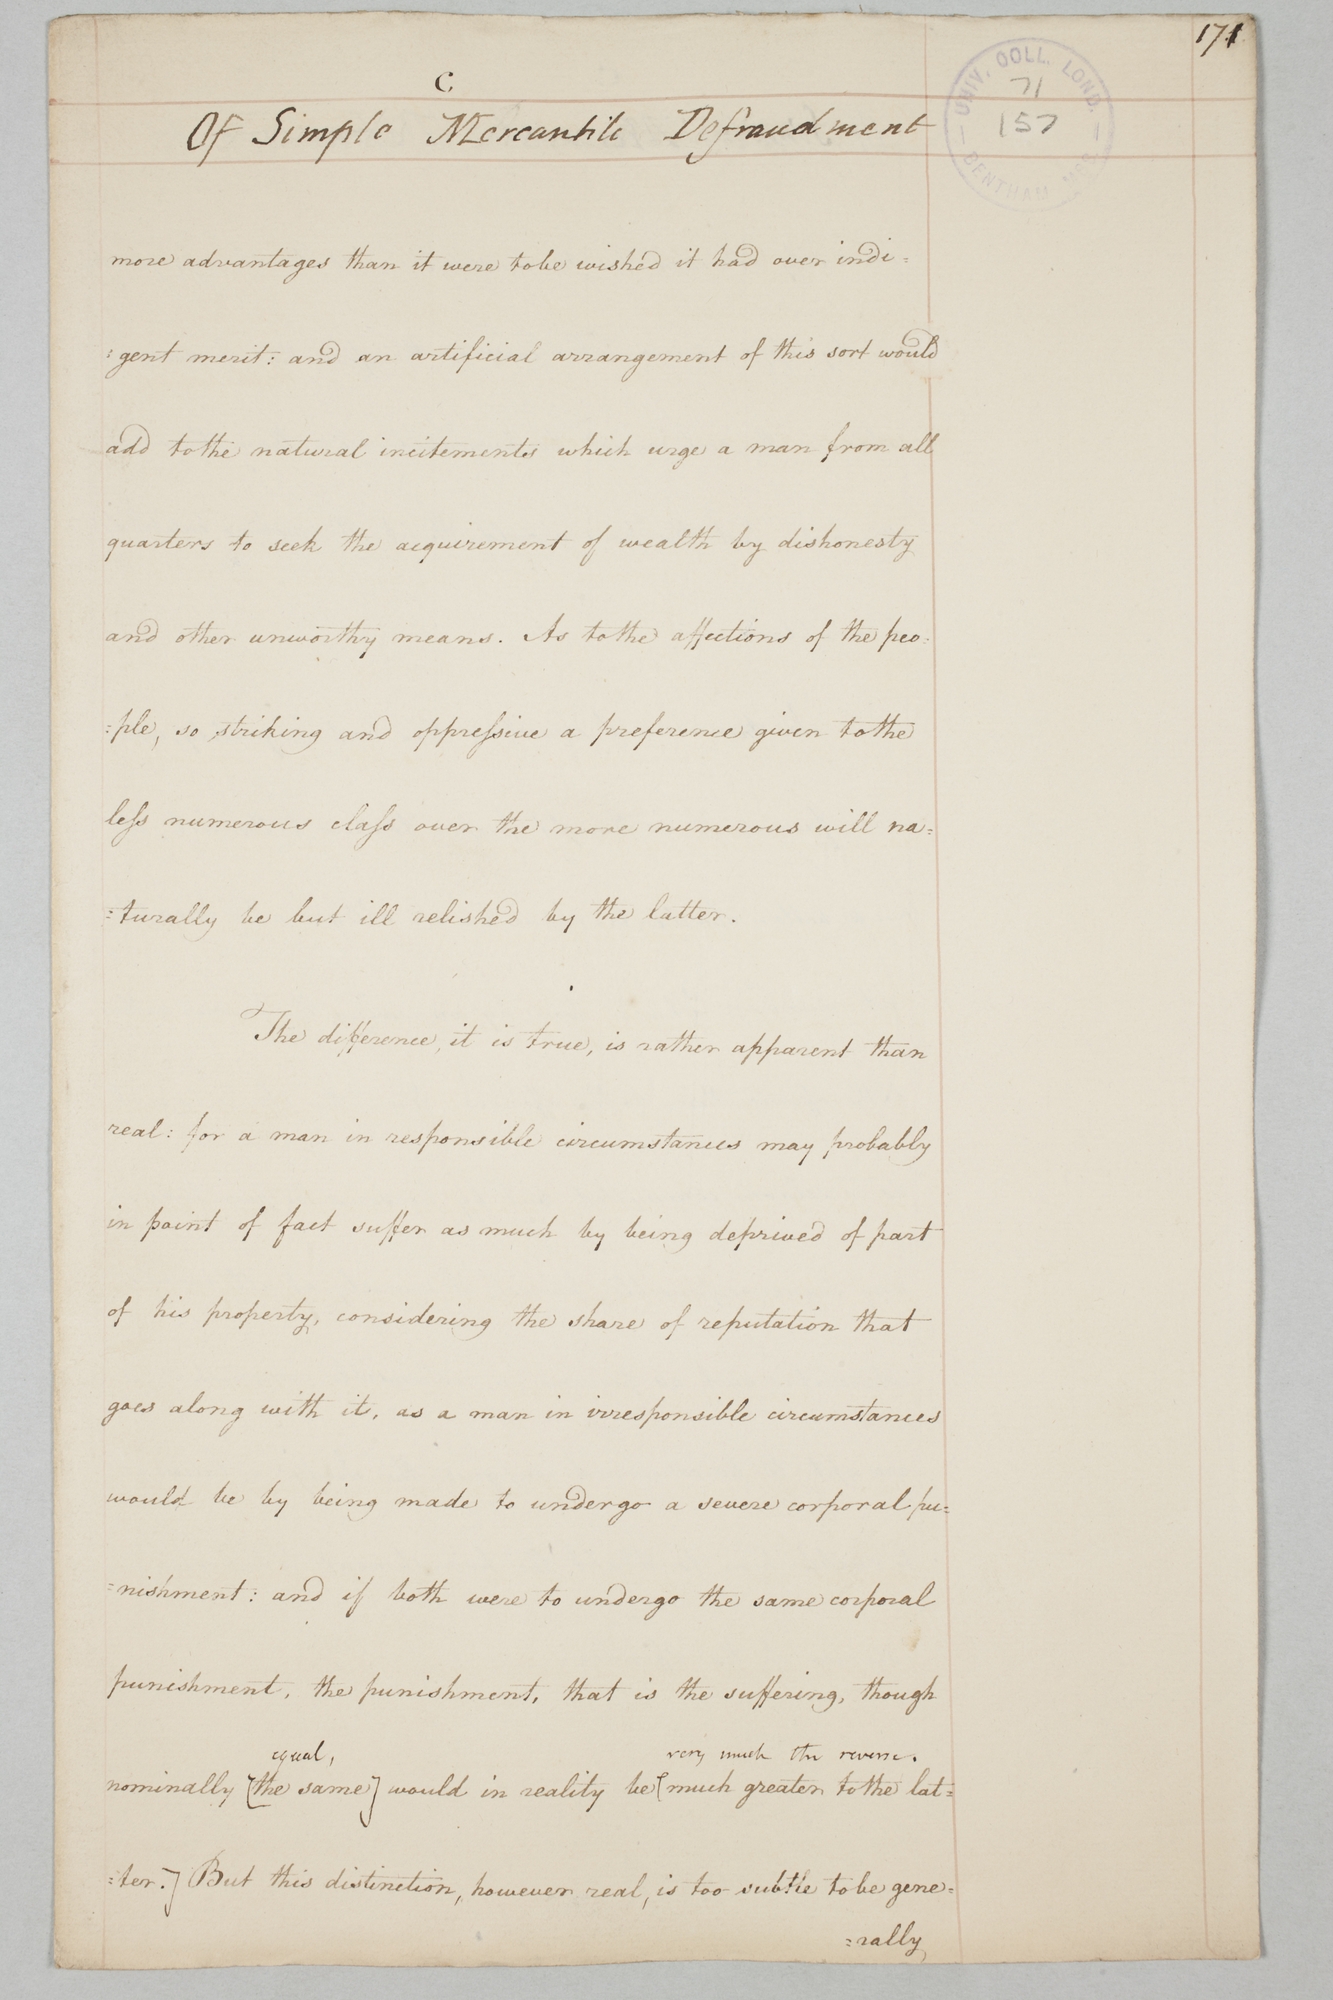 171
UNIV. COLL. LOND.
71
157
BENTHAM MSS
C
Of Simple Mercantile Defraudment
more advantages than it were to be wished it had over indi=
=gent merit: and an artificial arrangement of this sort would
add to the natural incitements which urge a man from all
quarters to seek the acquirement of wealth by dishonesty
and other unworthy means. As to the affections of the peo=
=ple, so striking and oppreſsive a preference given to the
leſs numerous claſs over the more numerous will na=
=turally be but ill relished by the latter.
The difference, it is true, is rather apparent than
real: for a man in responsible circumstances may probably
in point of fact suffer as much by being deprived of part
of his property, considering the share of reputation that
goes along with it, as a man in irresponsible circumstances
would be by being made to undergo a severe corporal pu=
=nishment: and if both were to undergo the same corporal
punishment, the punishment, that is the suffering, though
equal, very much the reverse.
nominally [the same] would in reality be [much greater to the lat=
=ter.] But this distinction, however real, is too subtle to be gene=
=rally